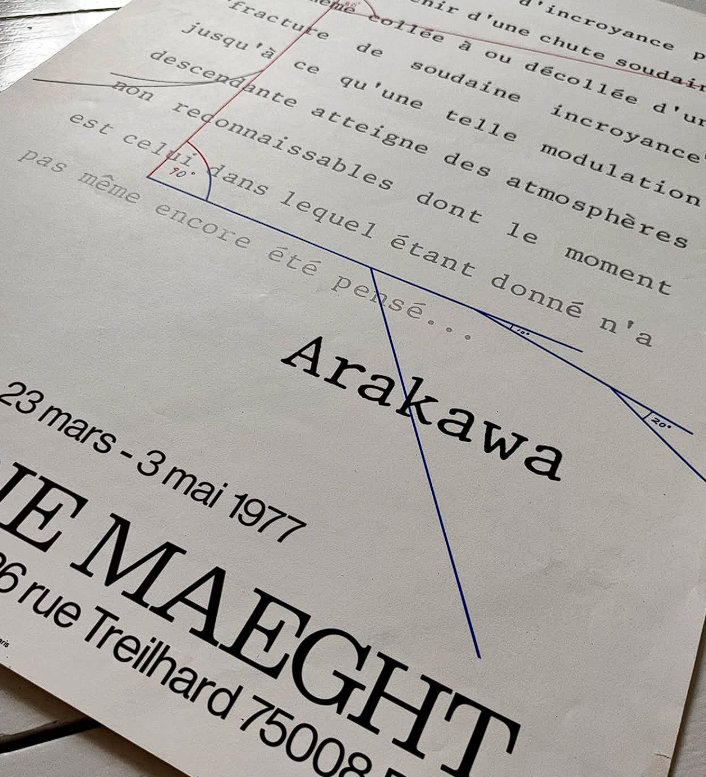 d'incroyance
d'une chute
même collée à ou décollée
fracture de soudaine incroyance"
jusqu'à ce qu'une telle modulation
descendante atteigne des atmosphères
non reconnaissables dont le moment
est celui dans lequel étant donné n'a
pas même encore été pensé...
90°
10°
20°
Arakawa
23 mars - 3 mai 1977
MAEGHT
rue Treilhard 75008